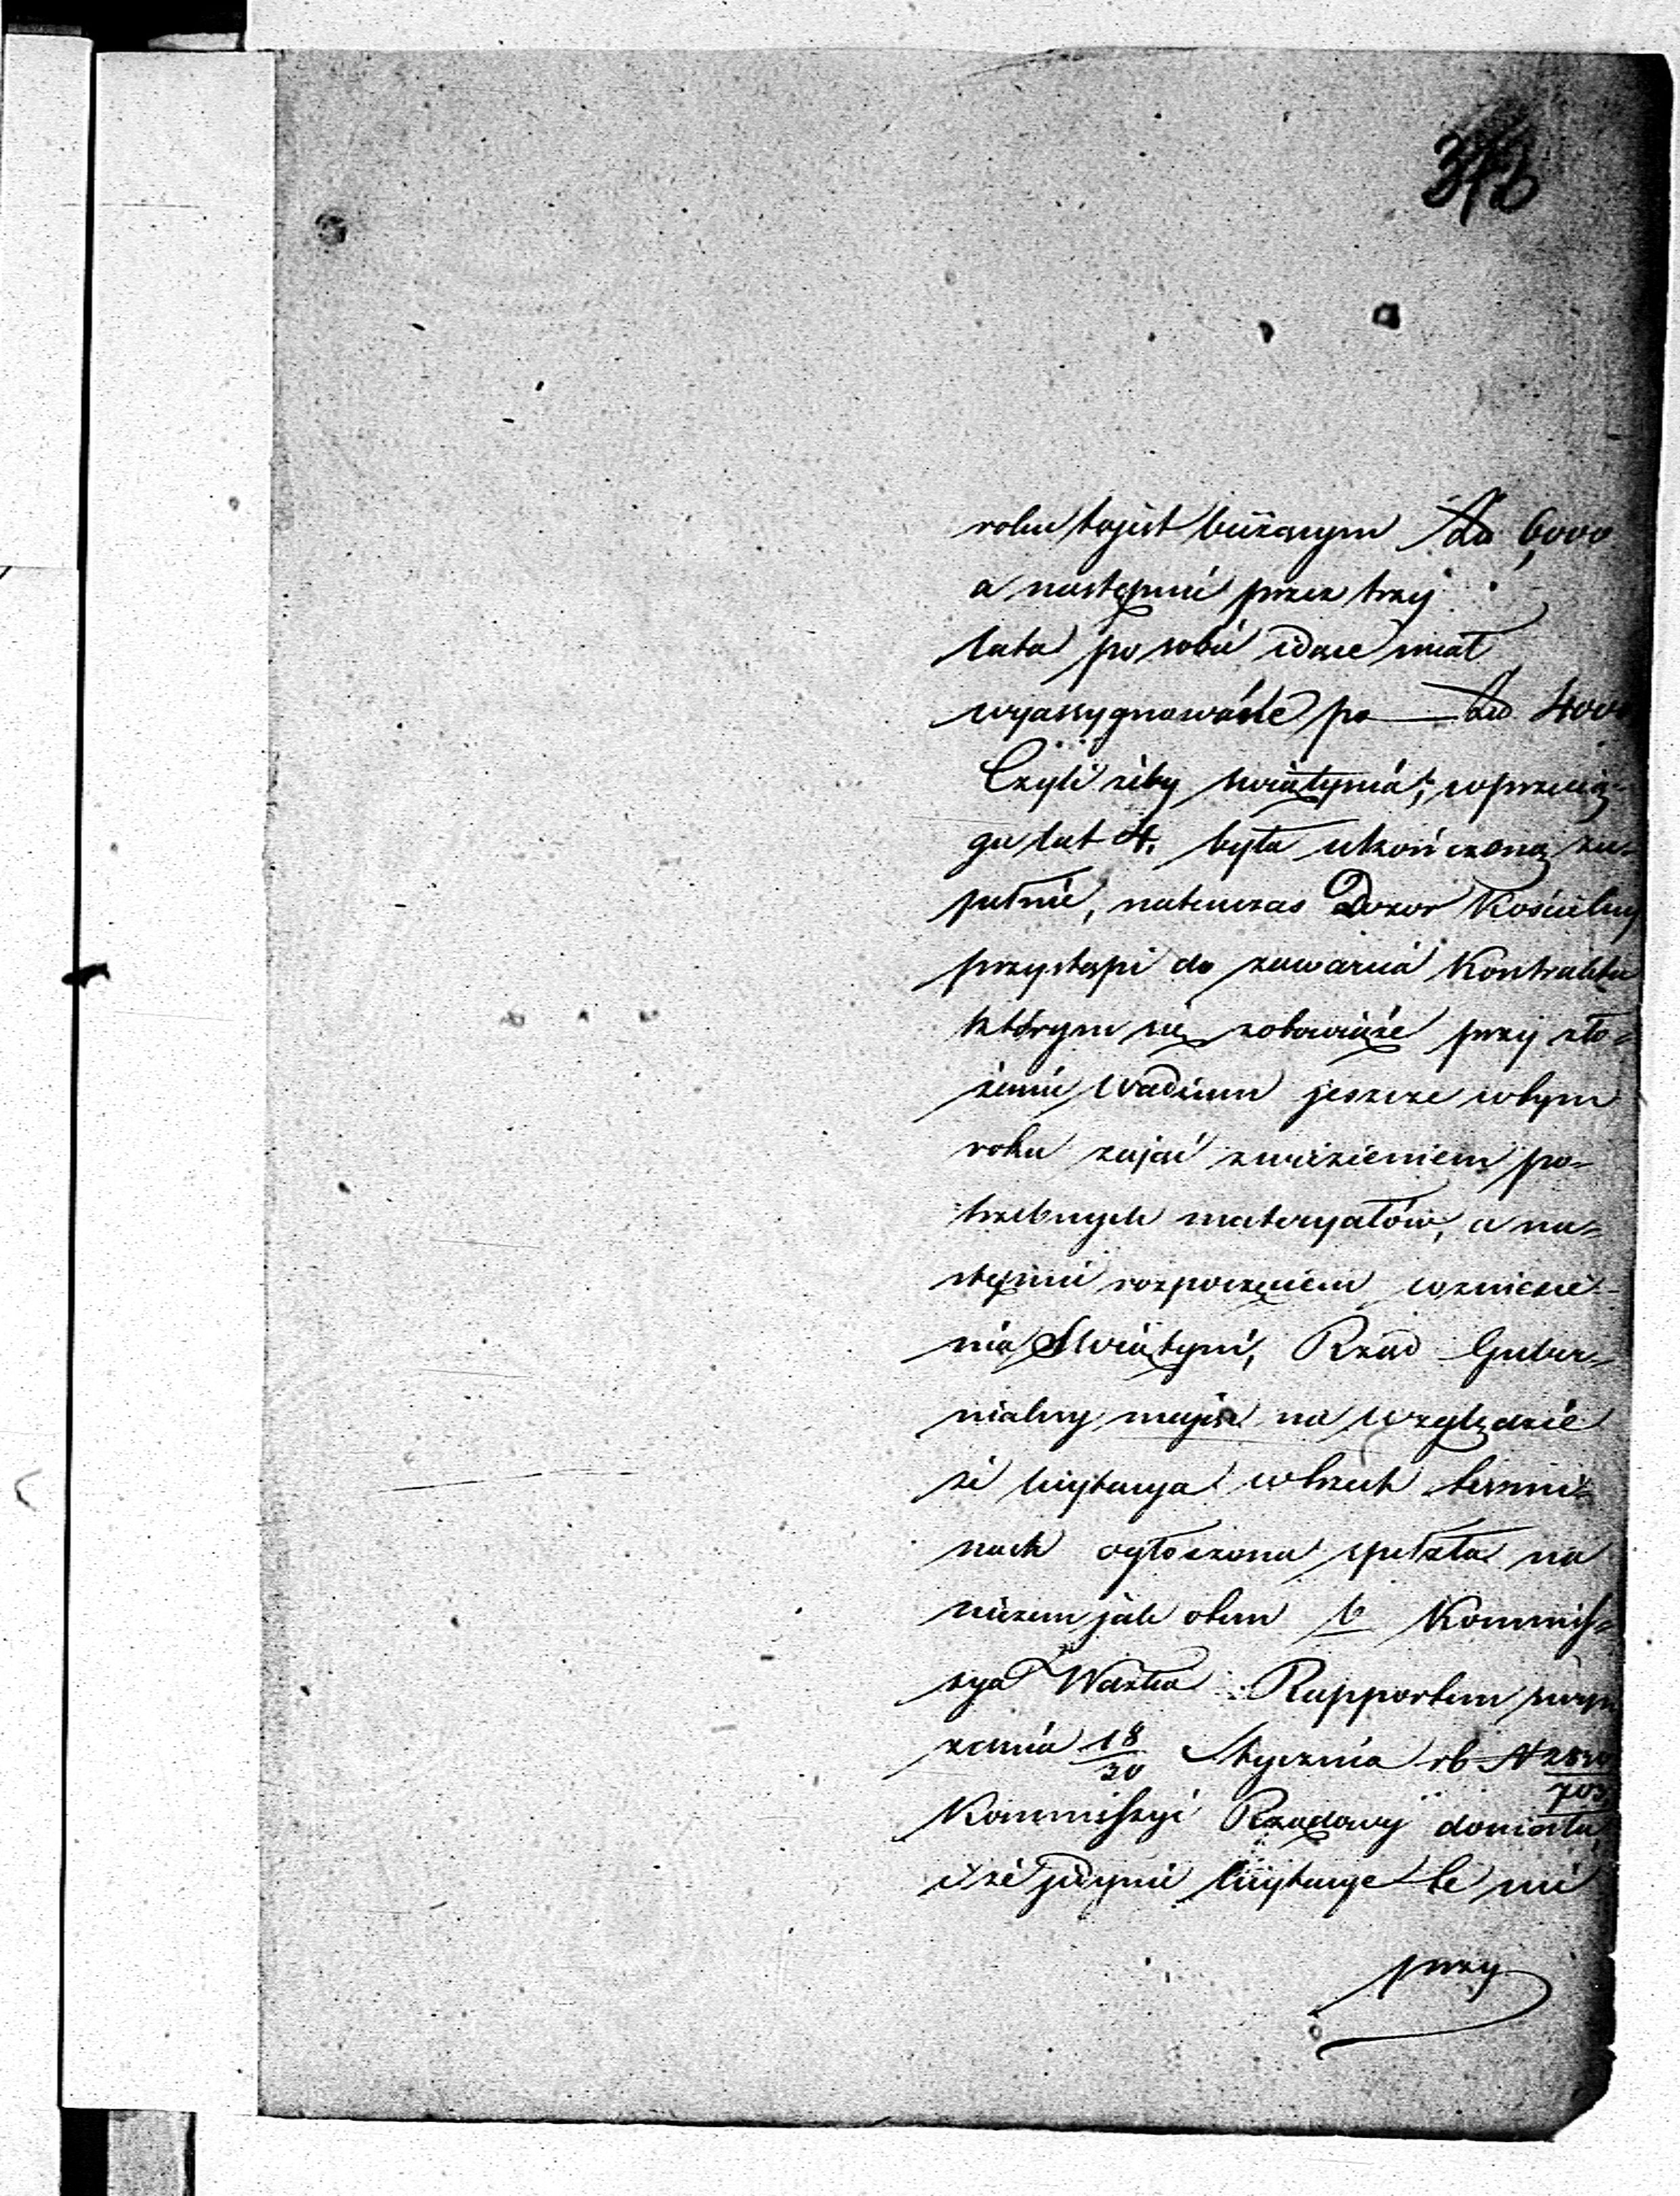 roku to jest bieżącym Złp 6000
a następnie przez trzy
lata po sobie idące miał
wyassygnowane po — Złp 4000
Czyli żeby Swiątynia, w przecią-
gu lat 4. była ukończoną zu-
pełnie, natenczas Dozor Kościelny
przystąpi do zawarcia Kontraktu
którym się zobowiąże przy zło-
żeniu Wadium jeszcze w tym
roku zająć zwiezieniem po-
trzebnych materyałów, a na-
stępnie rozpoczęciem wzniesie-
nia Swiątyni, Rząd Guber-
nialny mając na względzie
że licytacya w trzech termi-
nach ogłoszona spełzła na
niczem jak o tem b Kommis-
sya Wdzka Rapportem
z dnia 18/30 Stycznia rb N
Kommissyi Rządowy doniosła,
i że jedynie licytacye te nie
przy